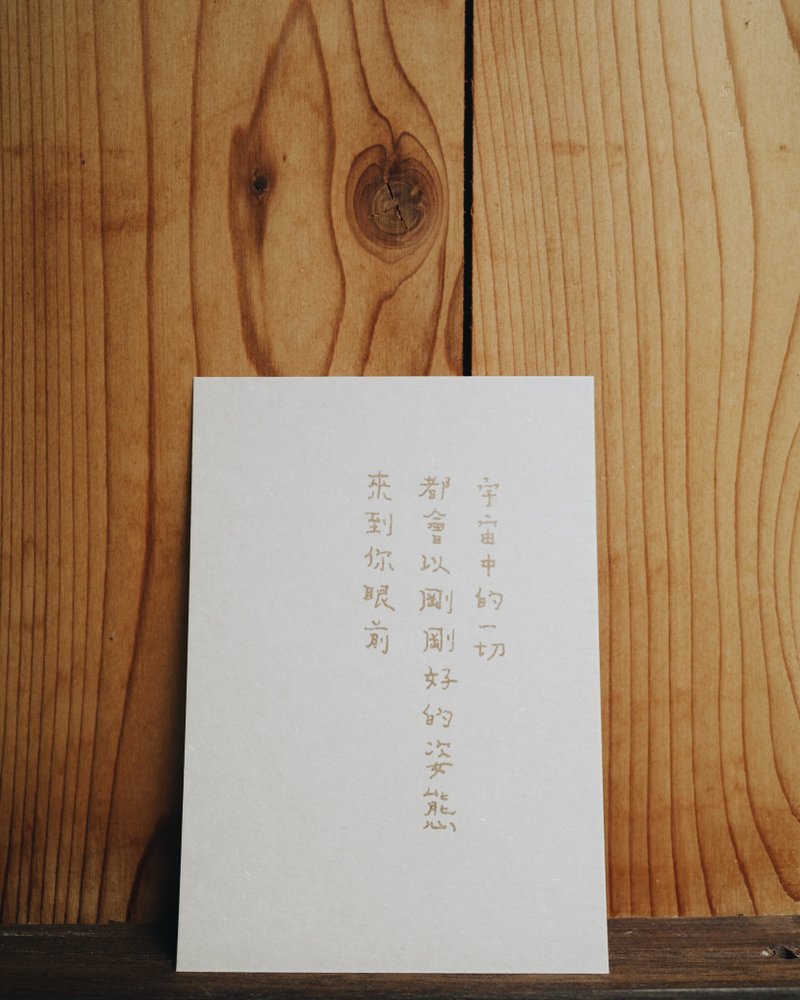 宇宙中的一切
都會以剛剛好的姿態
來到你眼前